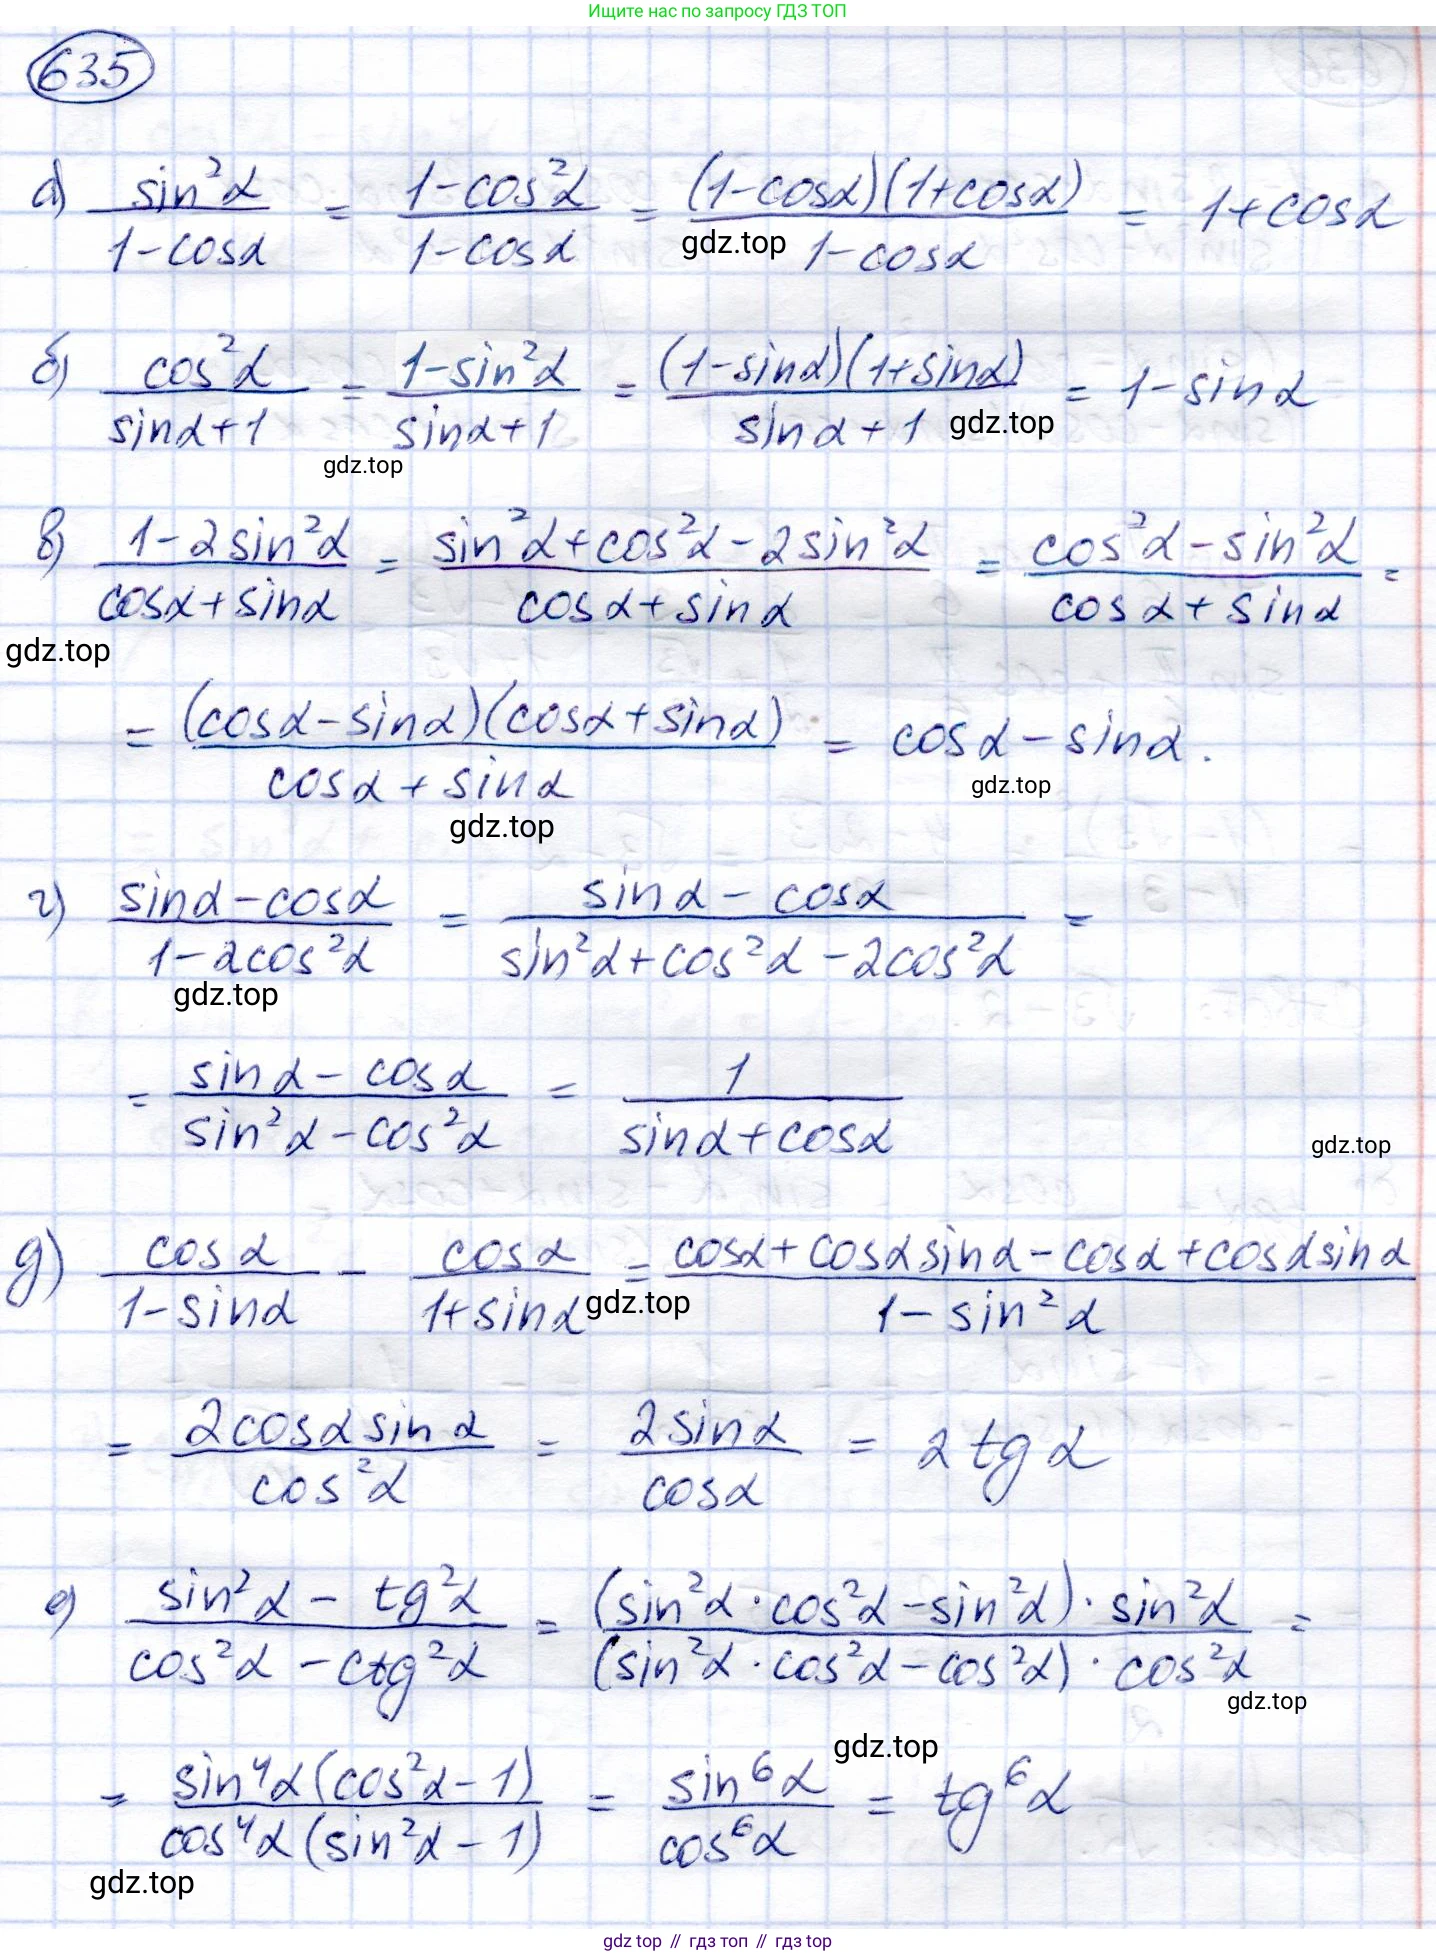 Ищите нас по запросу ГДЗ ТОП
635
а) sin²α / (1-cosα) = (1-cos²α) / (1-cosα) = (1-cosα)(1+cosα) / (1-cosα) = 1+cosα
gdz.top
б) cos²α / (sinα+1) = (1-sin²α) / (sinα+1) = (1-sinα)(1+sinα) / (sinα+1) = 1-sinα
gdz.top
gdz.top
в) (1-2sin²α) / (cosα+sinα) = (sin²α+cos²α-2sin²α) / (cosα+sinα) = (cos²α-sin²α) / (cosα+sinα) =
gdz.top
= (cosα-sinα)(cosα+sinα) / (cosα+sinα) = cosα-sinα.
gdz.top
gdz.top
г) (sinα-cosα) / (1-2cos²α) = (sinα-cosα) / (sin²α+cos²α-2cos²α) =
gdz.top
= (sinα-cosα) / (sin²α-cos²α) = 1 / (sinα+cosα)
gdz.top
д) cosα / (1-sinα) - cosα / (1+sinα) = (cosα+cosαsinα-cosα+cosαsinα) / (1-sin²α)
gdz.top
= 2cosαsinα / cos²α = 2sinα / cosα = 2tgα
е) (sin²α-tg²α) / (cos²α-ctg²α) = (sin²α·cos²α-sin²α)·sin²α / (sin²α·cos²α-cos²α)·cos²α =
gdz.top
gdz.top
= sin⁴α(cos²α-1) / cos⁴α(sin²α-1) = sin⁶α / cos⁶α = tg⁶α
gdz.top
gdz top // гдз топ // гдз top